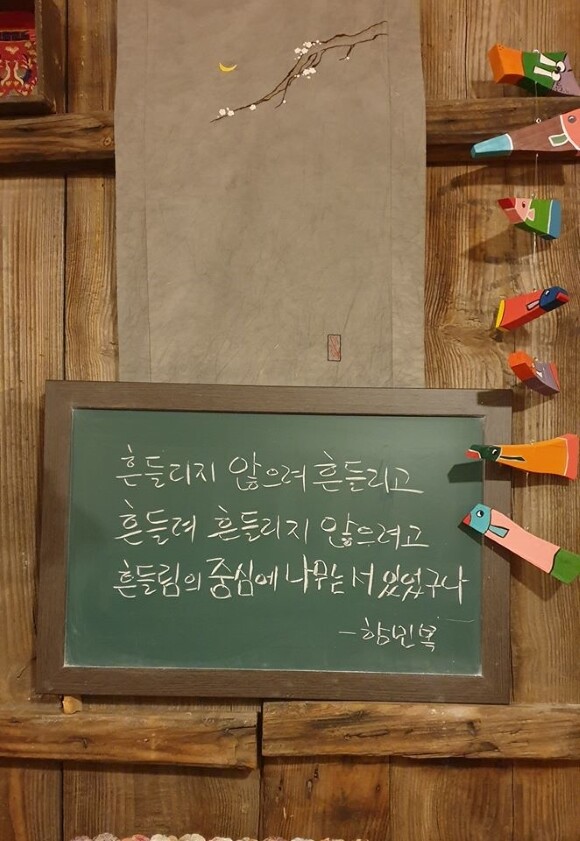 흔들리지 않으려 흔들리고
흔들려 흔들리지 않으려고
흔들림의 중심에 나무는 서 있었구나
- 함민복